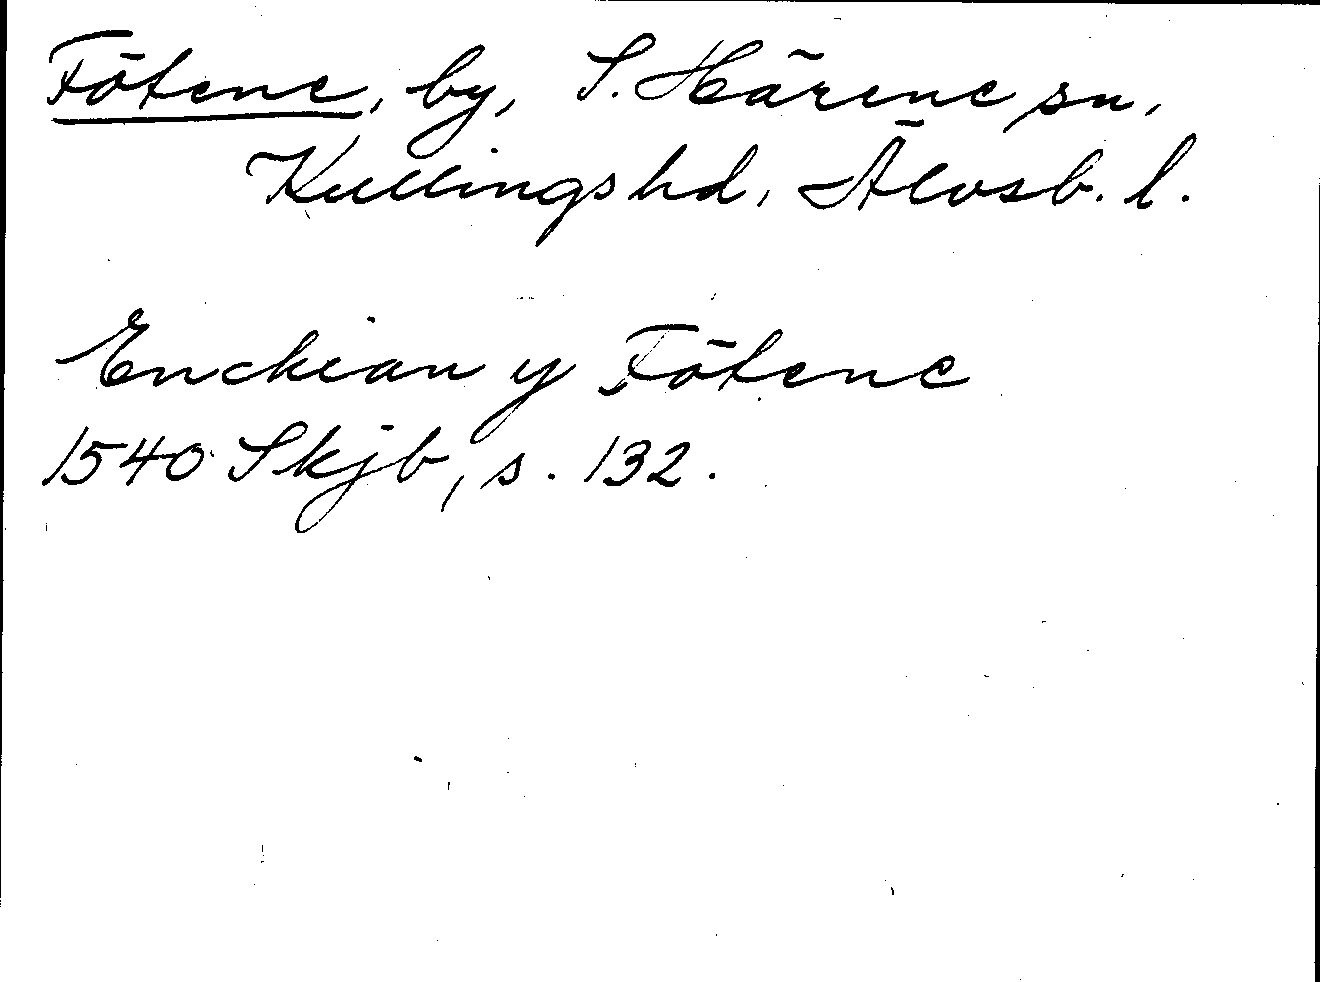 Fötene, by, S. Härene sn,
Kullings hd, Älvsb. l.
Enckian y Fötene
1540 Skjb, s. 132.